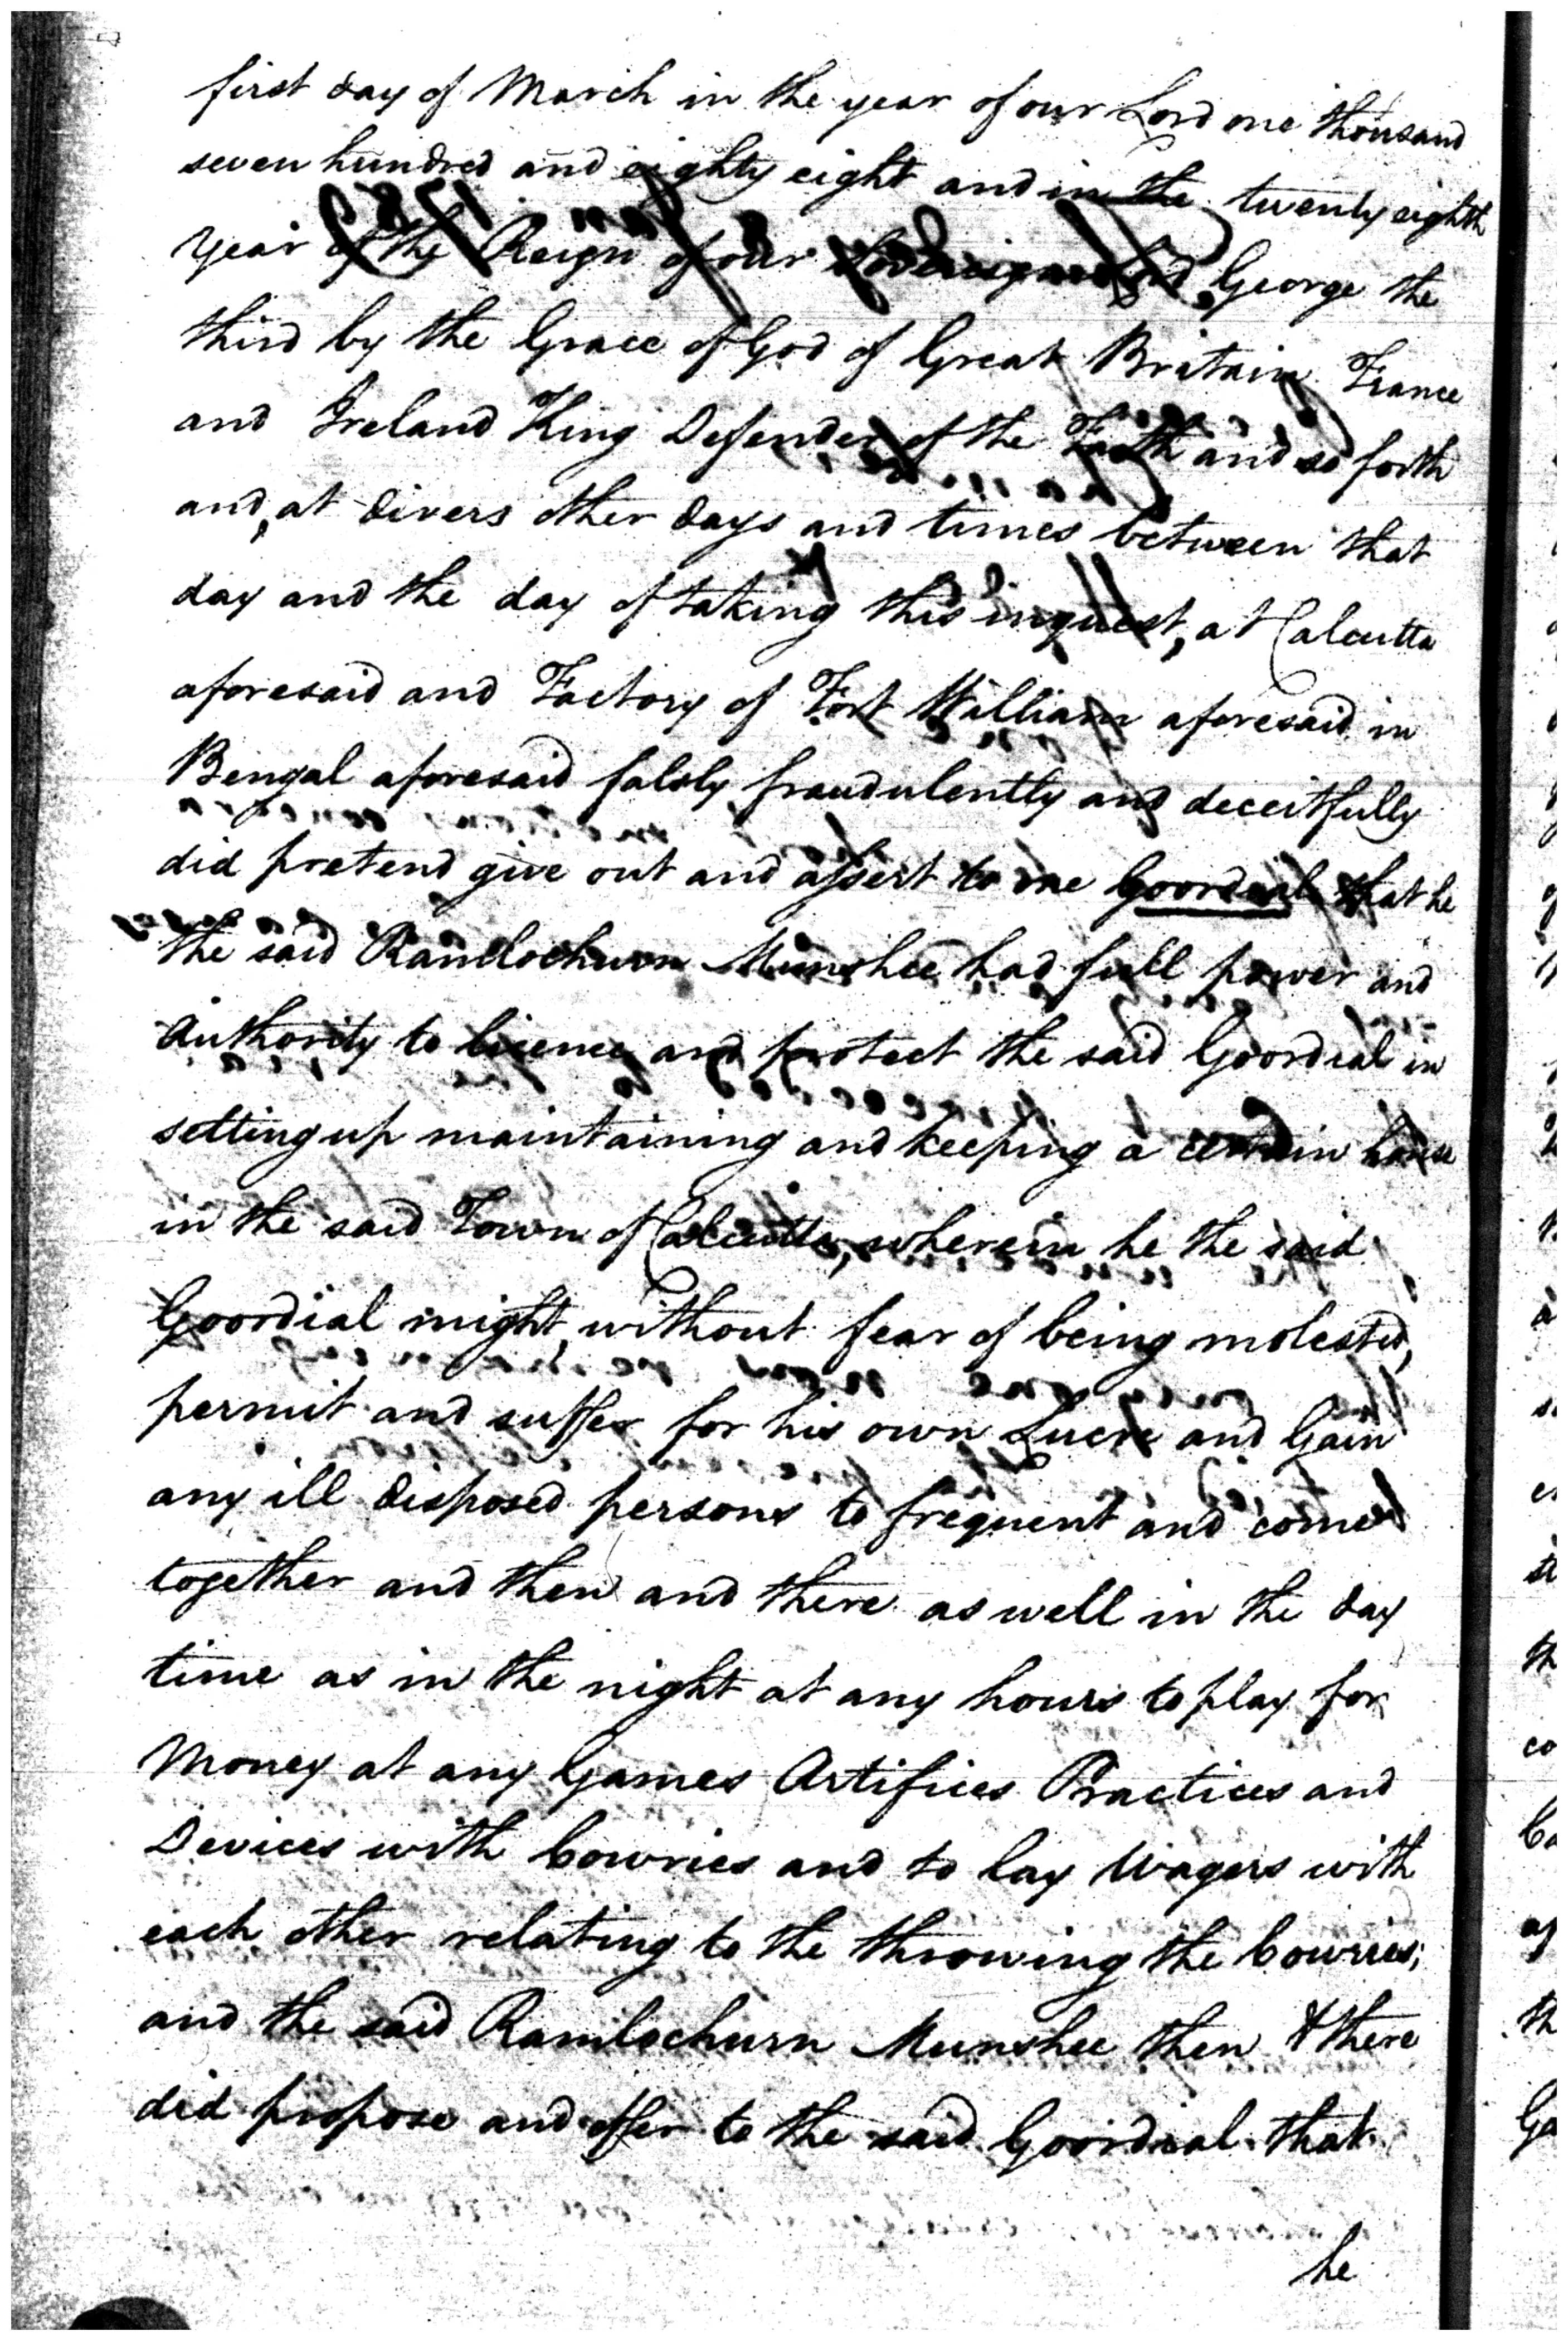 first day of March in the year of our Lord one thousand
seven hundred and eighty eight and in the twenty eighth
year of the Reign of our Sovereign Lord George the
third by the Grace of God of Great Britain France
and Ireland King Defender of the Faith and so forth
and, at divers other days and times between that
day and the day of taking this inquest, at Calcutta
aforesaid and Factory of Fort William aforesaid in
Bengal aforesaid falsly fraudulently and deceitfully
did pretend give out and assert to one Goordial that he
the said Ramlochurn Munshee had full power and
Authority to licence and protect the said Goordial in
setting up maintaining and keeping a certain house
in the said Town of Calcutta, wherein he the said
Goordial might, without fear of being molested,
permit and suffer for his own Lucre and Gain
any ill disposed persons to frequent and come
together and then and there as well in the day
time as in the night at any hours to play for
Money at any Games Artifices Practices and
Devices with Cowries and to lay Wagers with
each other relating to the throwing the Cowries;
and the said Ramlochurn Munshee then & there
did propose and offer to the said Goordial that
he